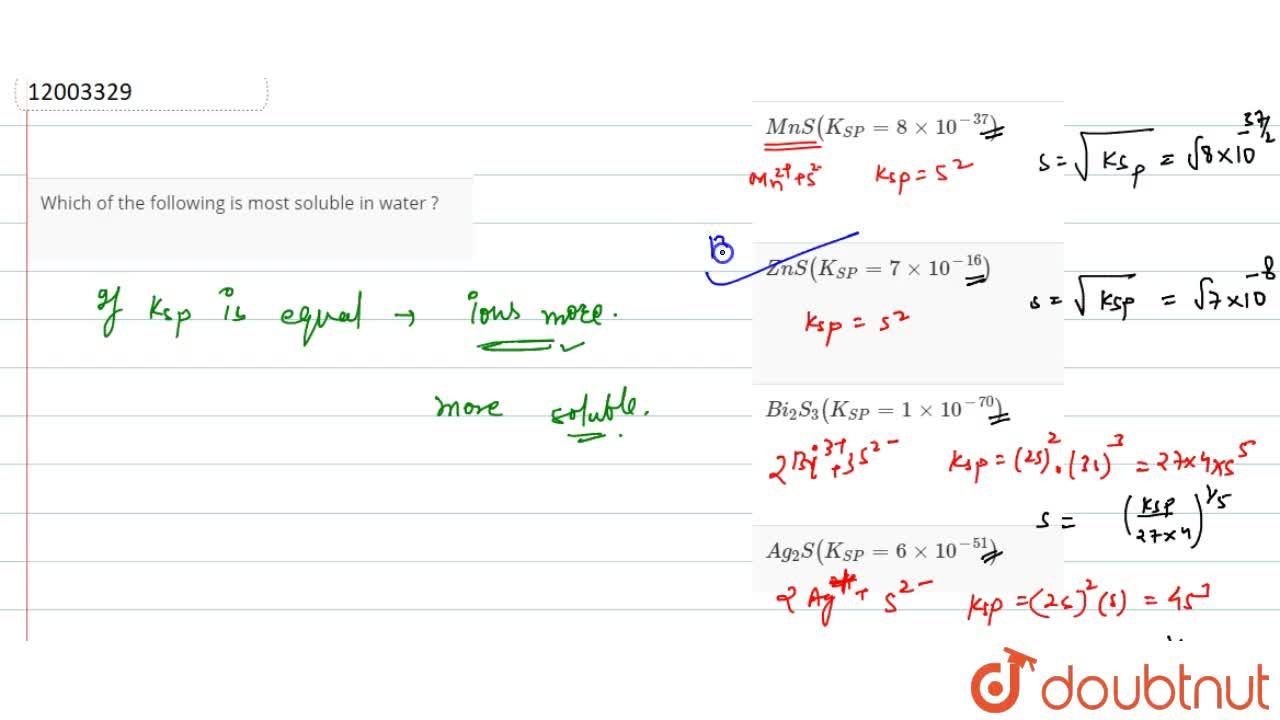 12003329
Which of the following is most soluble in water ?
If Ksp is equal → ions more.
more soluble.
MnS(K_{SP} = 8 × 10^{-37})
Mn^{2+} + S^{2-} Ksp = S^2
S = √Ksp = √8 × 10^{-37/2}
B
ZnS(K_{SP} = 7 × 10^{-16})
Ksp = s^2
s = √Ksp = √7 × 10^{-8}
Bi_2S_3(K_{SP} = 1 × 10^{-70})
2Bi^{3+} + 3S^{2-} Ksp = (2s)^2 . (3s)^3 = 27×4×s^5
S = (Ksp/27×4)^{1/5}
Ag_2S(K_{SP} = 6 × 10^{-51})
2Ag^+ + S^{2-} Ksp = (2s)^2 (s) = 4s^3
doubtnut